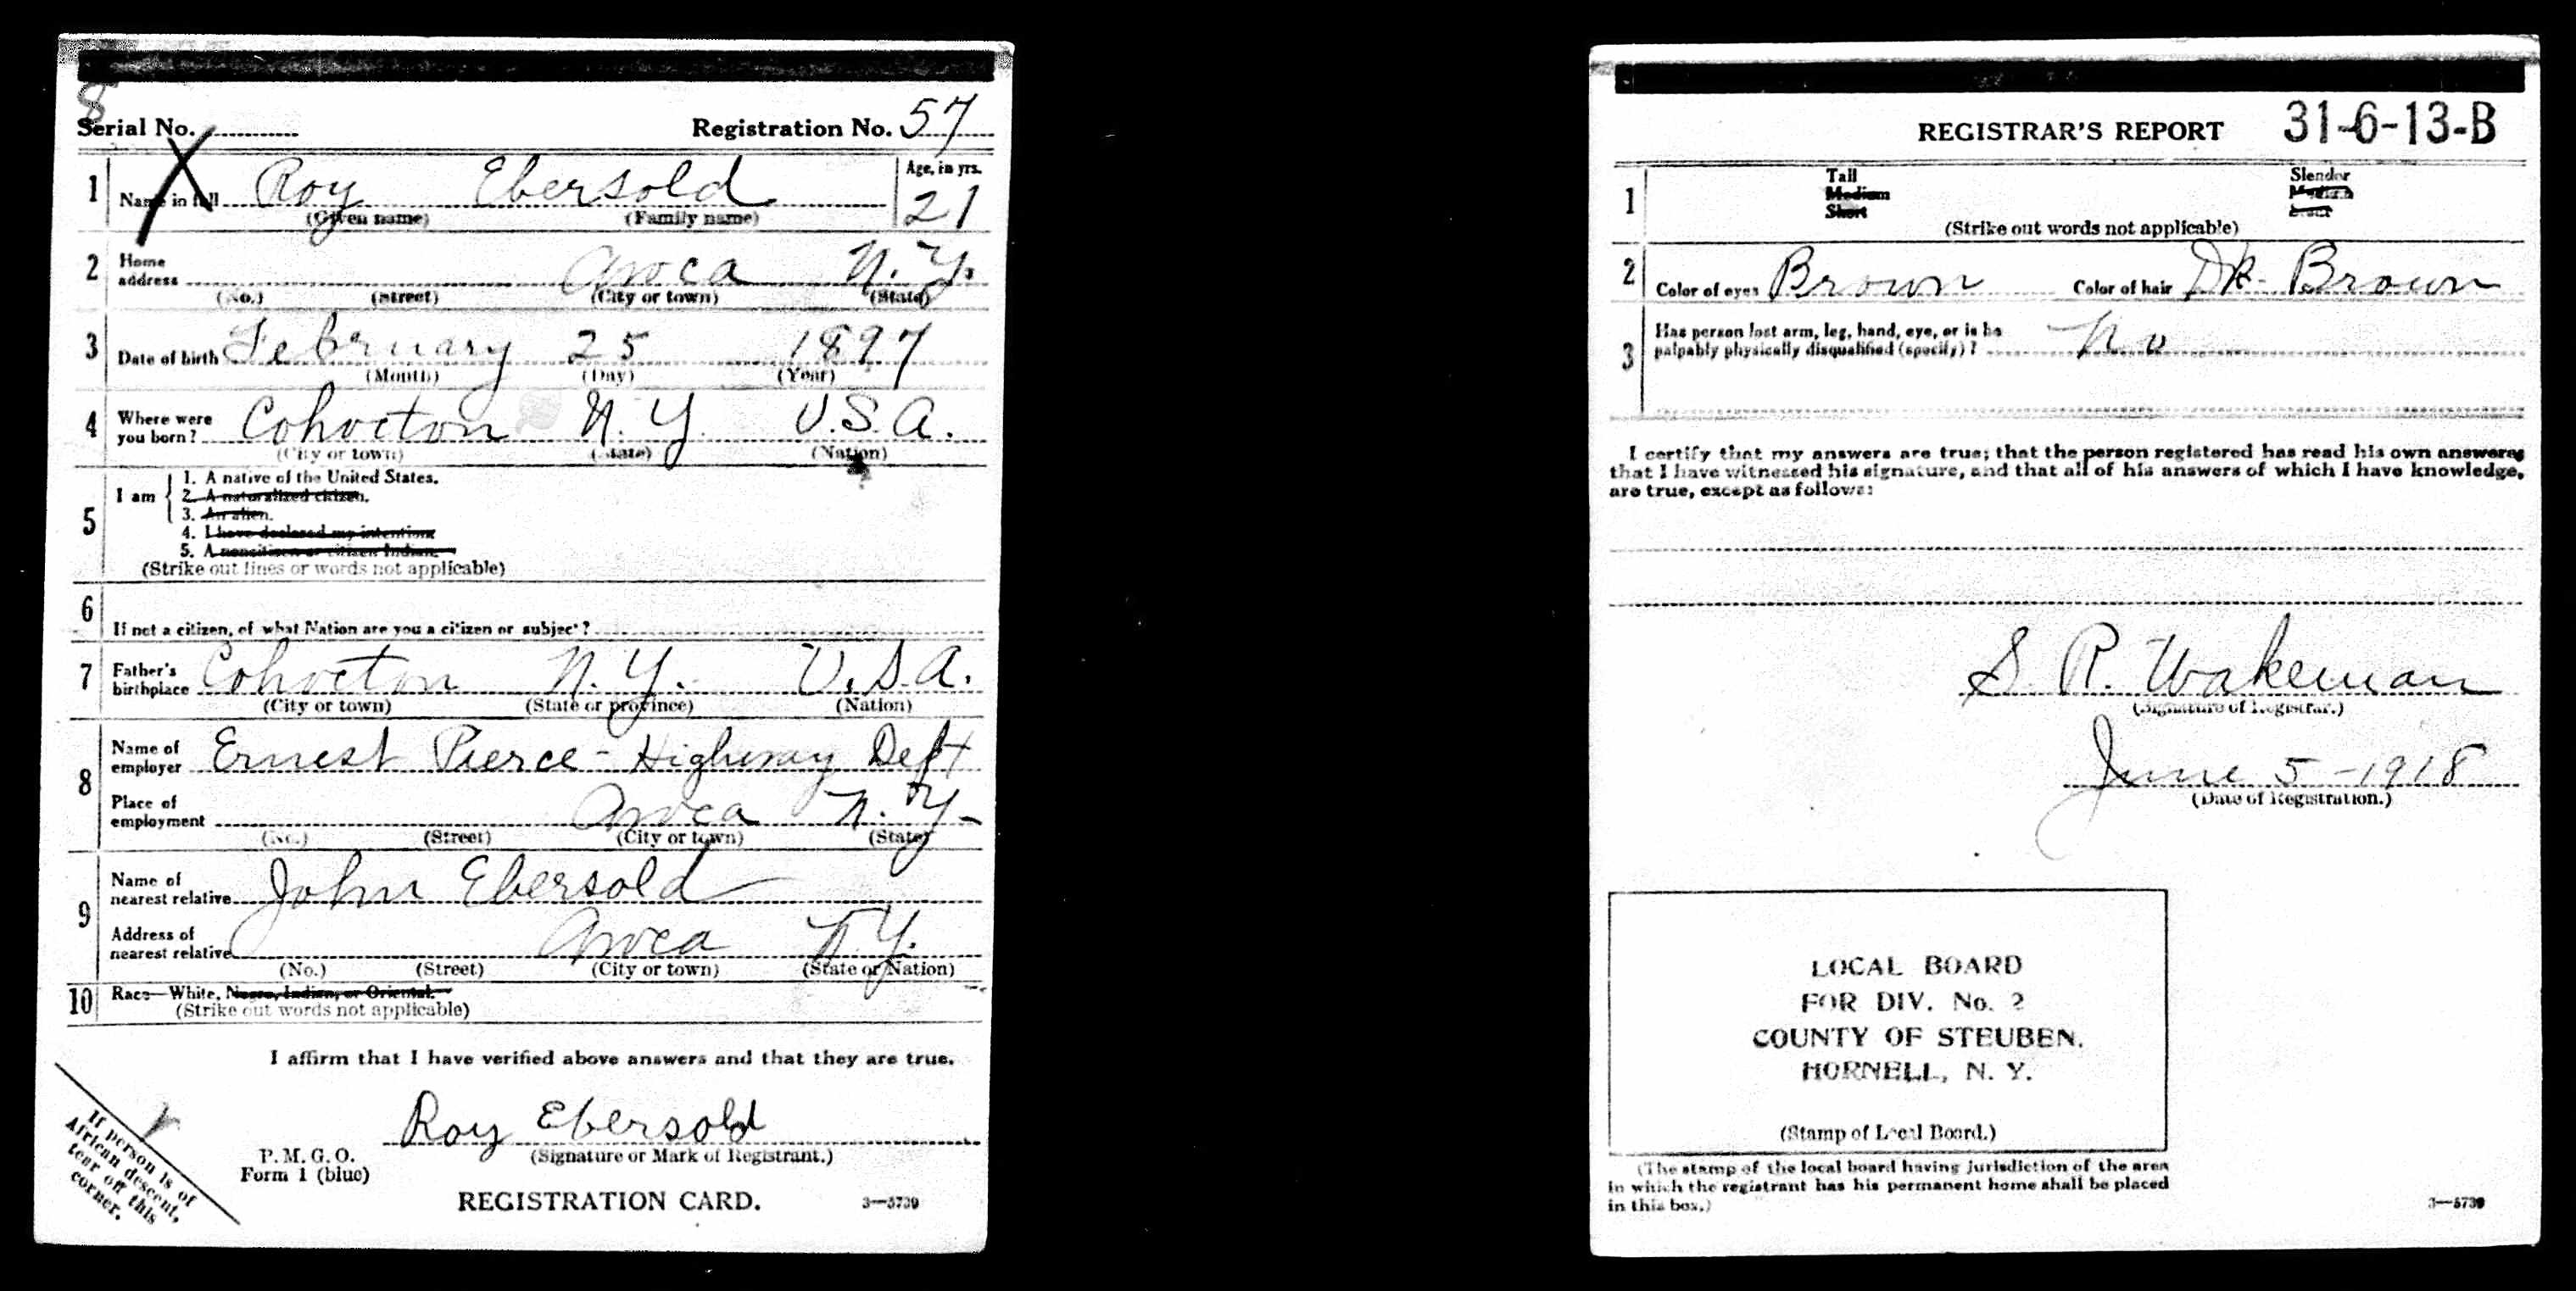 8
Serial No. Registration No. 57
X
1 Name in full Roy Ebersold Age, in yrs. 21
(Given name) (Family name)
2 Home address Avoca N. Y.
(No.) (Street) (City or town) (State)
3 Date of birth February 25 1897
(Month) (Day) (Year)
4 Where were you born? Cohocton N. Y. U.S.A.
(City or town) (State) (Nation)
5 I am
1. A native of the United States.
2. A naturalized citizen.
3. An alien.
4. I have declared my intention
5. A noncitizen or citizen Indian.
(Strike out lines or words not applicable)
6 If not a citizen, of what Nation are you a citizen or subject?
7 Father's birthplace Cohocton N. Y. U.S.A.
(City or town) (State or province) (Nation)
8 Name of employer Ernest Pierce - Highway Dept
Place of employment Avoca N. Y.
(No.) (Street) (City or town) (State)
9 Name of nearest relative John Ebersold
Address of nearest relative Avoca N.Y.
(No.) (Street) (City or town) (State or Nation)
10 Race—White, Negro, Indian, or Oriental.
(Strike out words not applicable)
I affirm that I have verified above answers and that they are true.
Roy Ebersold
P. M. G. O. (Signature or Mark of Registrant.)
Form 1 (blue)
REGISTRATION CARD. 3—5739
If person is of
African descent,
tear off this
corner.
REGISTRAR'S REPORT 31-6-13-B
1 Tall Slender
Medium Medium
Short Stout
(Strike out words not applicable)
2 Color of eyes Brown Color of hair Dk. Brown
3 Has person lost arm, leg, hand, eye, or is he
palpably physically disqualified (specify)? No
I certify that my answers are true; that the person registered has read his own answers
that I have witnessed his signature, and that all of his answers of which I have knowledge,
are true, except as follows:
S. R. Wakeman
(Signature of Registrar.)
June 5 - 1918
(Date of Registration.)
LOCAL BOARD
FOR DIV. No. 2
COUNTY OF STEUBEN.
HORNELL, N. Y.
(Stamp of Local Board.)
(The stamp of the local board having jurisdiction of the area
in which the registrant has his permanent home shall be placed
in this box.) 3—5739